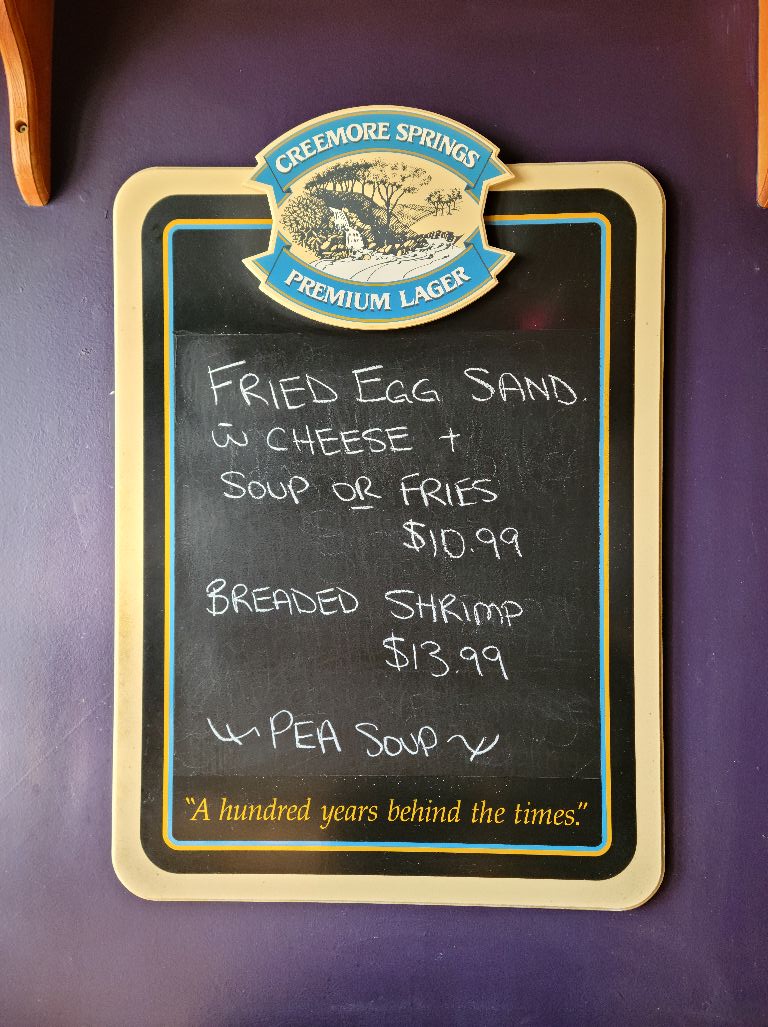 CREEMORE SPRINGS
PREMIUM LAGER
FRIED EGG SAND.
w̄ CHEESE +
SOUP OR FRIES
$10.99
BREADED SHRIMP
$13.99
PEA SOUP
“A hundred years behind the times.”